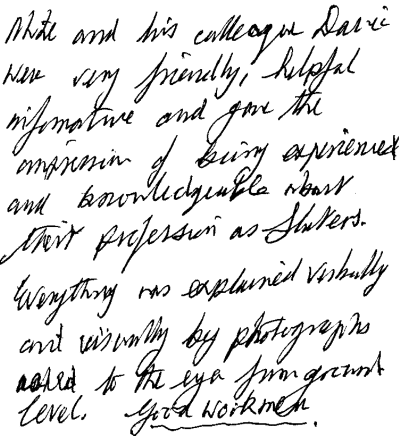 and his colleague David
were very friendly, helpful
informative and gave the
impression of being experienced
and knowledgeable about
their profession as Slaters.
Everything was explained verbally
and visually by photographs
to the eye from ground
level. Good workmen.